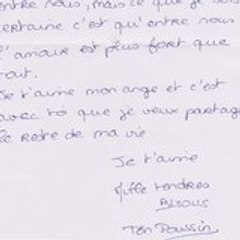 entre nous, mais ce que je sais
certaine c'est qu'entre nous
l'amour est plus fort que
tout.
Je t'aime mon ange et c'est
avec toi que je veux partager
le reste de ma vie.
Je t'aime
Mille tendres
BISOUS
Ton Poussin